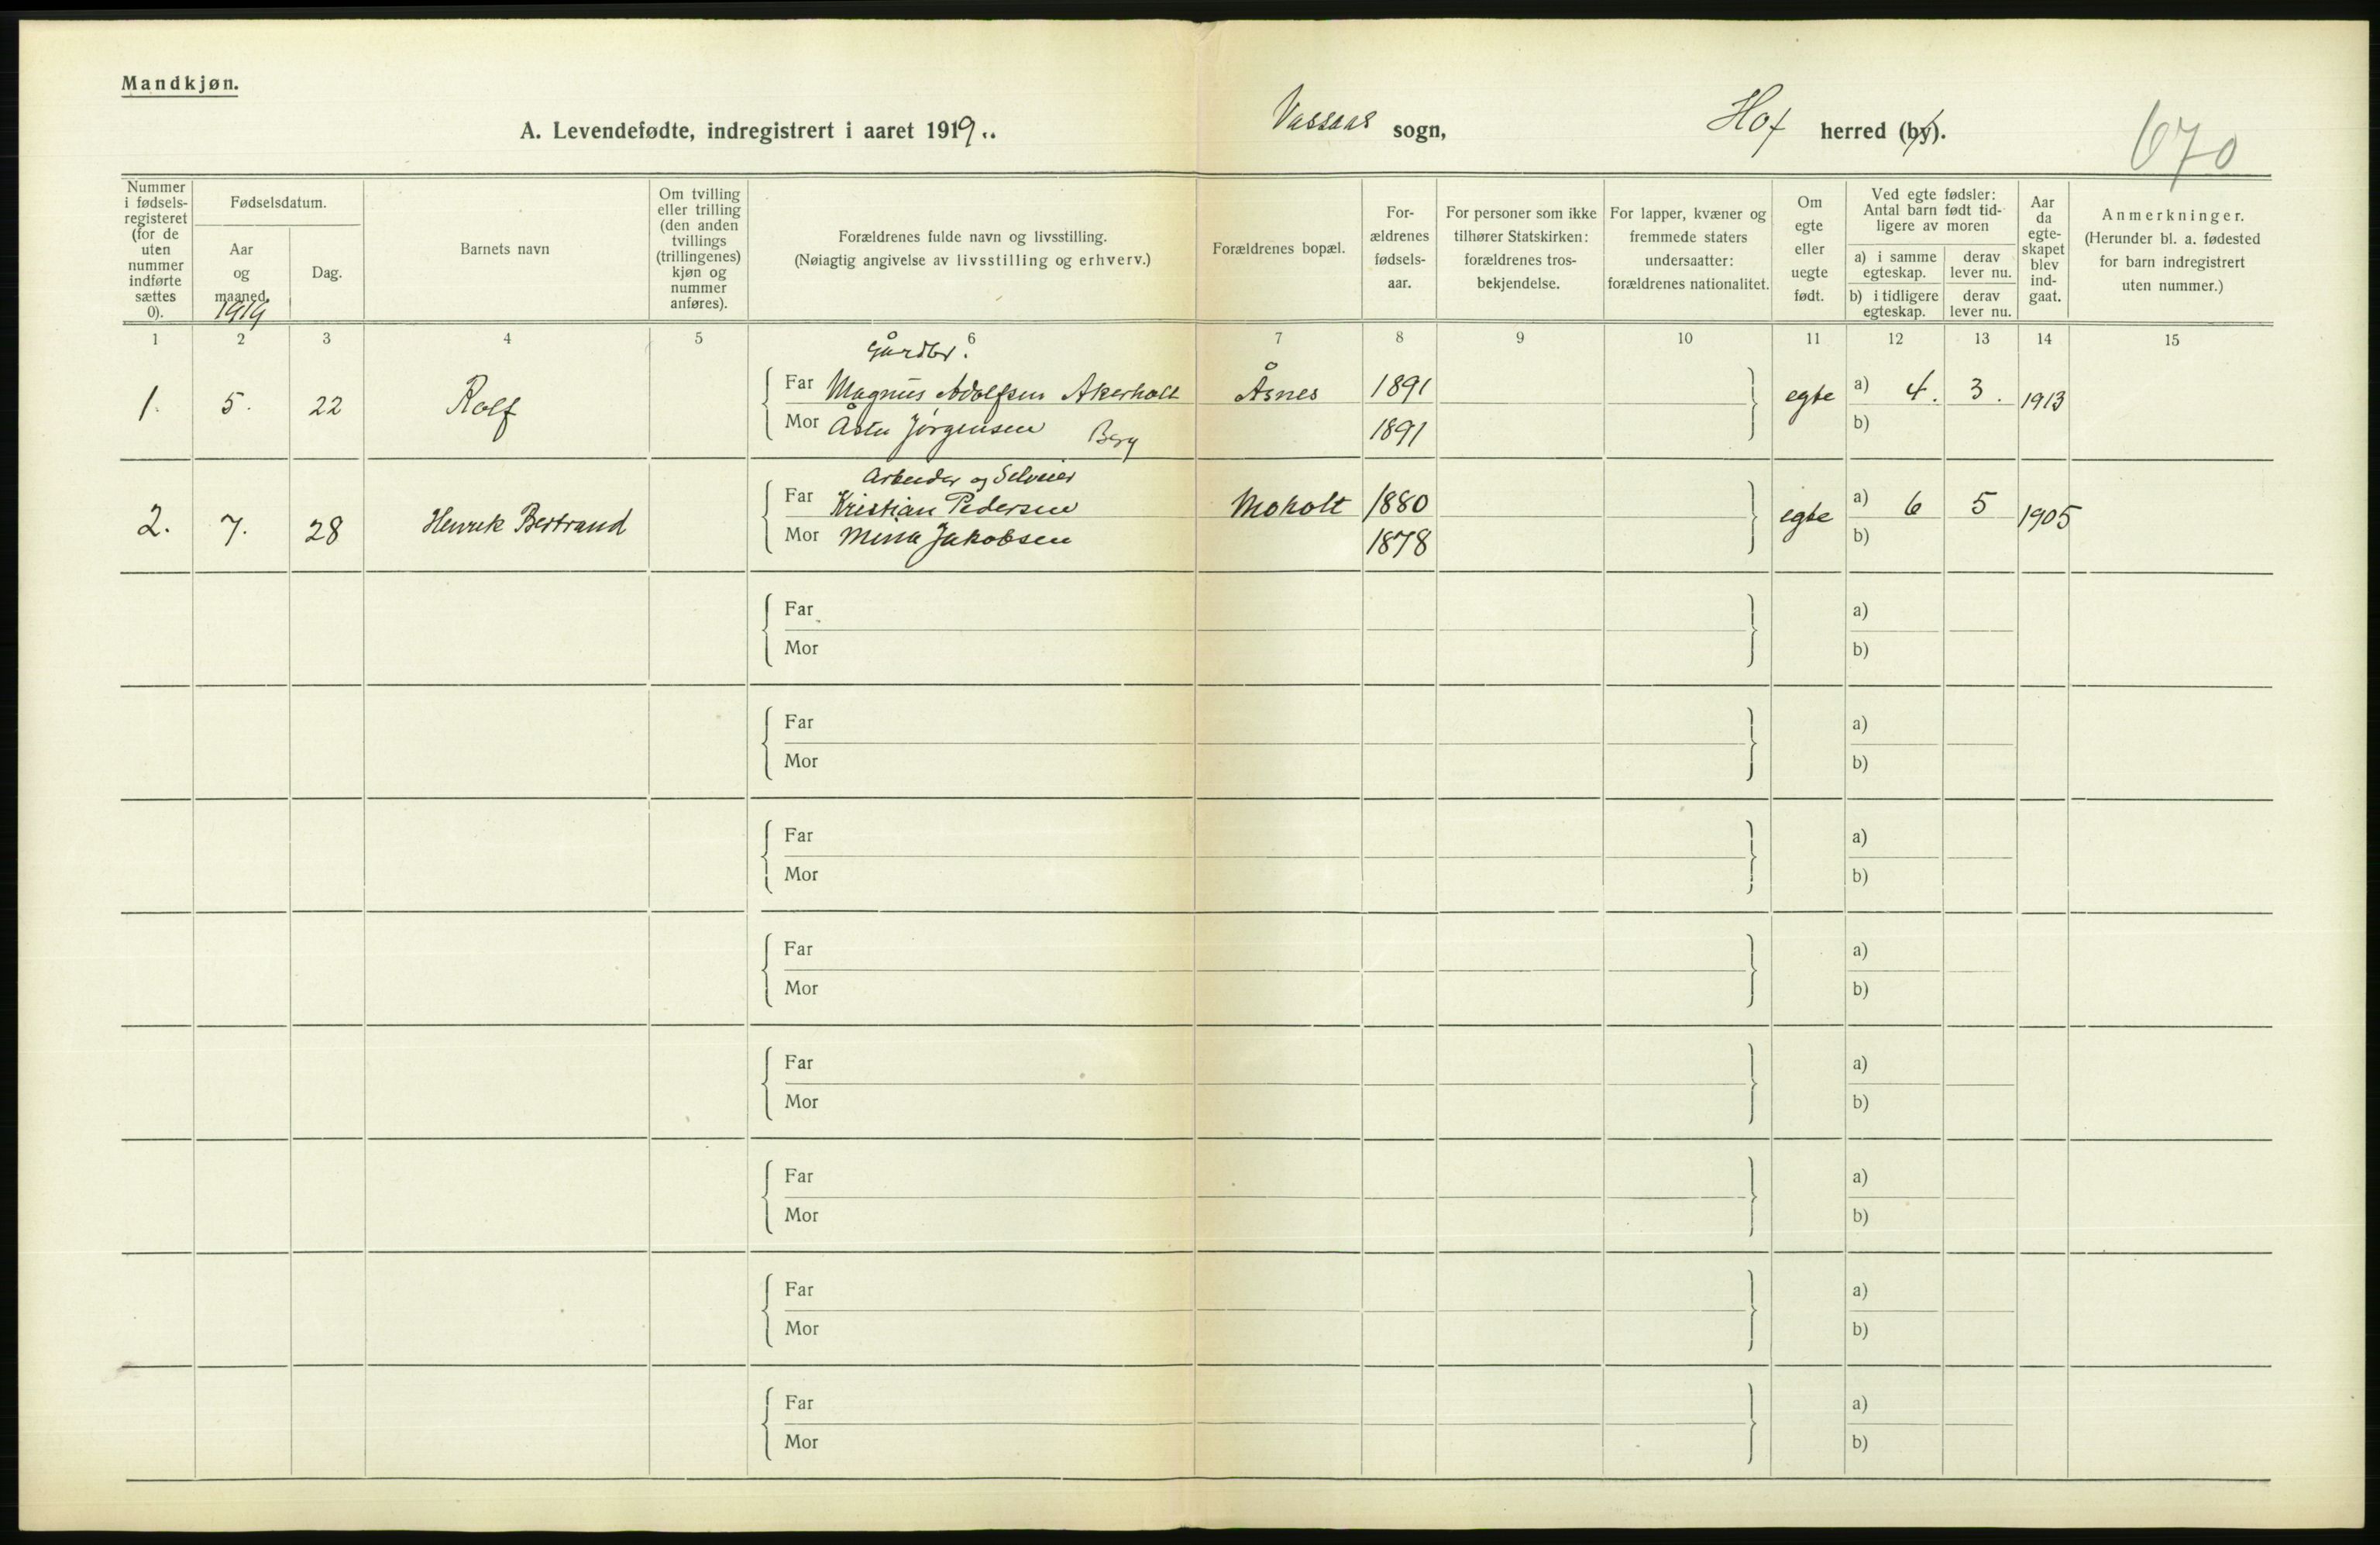 Mandkjøn.
A. Levendefødte, indregistrert i aaret 1919..
Vassaas sogn,
Hof herred (by).
670
Nummer i fødsels-registeret (for de uten nummer indførte sættes 0).
Fødselsdatum.
Aar og maaned.
1919
Dag.
Barnets navn
Om tvilling eller trilling (den anden tvillings (trillingenes) kjøn og nummer anføres).
Forældrenes fulde navn og livsstilling.
(Nøiagtig angivelse av livsstilling og erhverv.)
Forældrenes bopæl.
For-ældrenes fødsels-aar.
For personer som ikke tilhører Statskirken: forældrenes tros-bekjendelse.
For lapper, kvæner og fremmede staters undersaatter: forældrenes nationalitet.
Om egte eller uegte født.
Ved egte fødsler:
Antal barn født tid-ligere av moren
a) i samme egteskap.
derav lever nu.
b) i tidligere egteskap.
derav lever nu.
Aar da egte-skapet blev ind-gaat.
Anmerkninger.
(Herunder bl. a. fødested for barn indregistrert uten nummer.)
1 2 3 4 5 6 7 8 9 10 11 12 13 14 15
Gårdbr.
1. 5. 22 Rolf Far Magnus Adolfsen Akerholt Åsnes 1891 egte a) 4. 3. 1913
Mor Åsta Jørgensen Berg 1891 b)
Arbeider og Selveier
2. 7. 28 Henrik Bertrand Far Kristian Pedersen Moholt 1880 egte a) 6 5 1905
Mor Mina Jakobsen 1878 b)
Far a)
Mor b)
Far a)
Mor b)
Far a)
Mor b)
Far a)
Mor b)
Far a)
Mor b)
Far a)
Mor b)
Far a)
Mor b)
Far a)
Mor b)